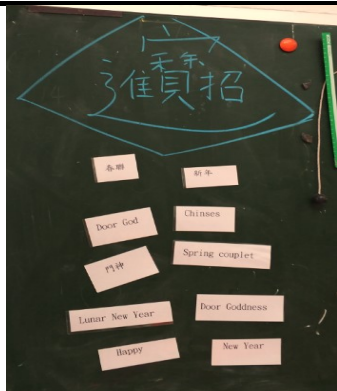 進寶招
春聯
新年
Door God
Chinses
門神
Spring couplet
Lunar New Year
Door Goddness
Happy
New Year